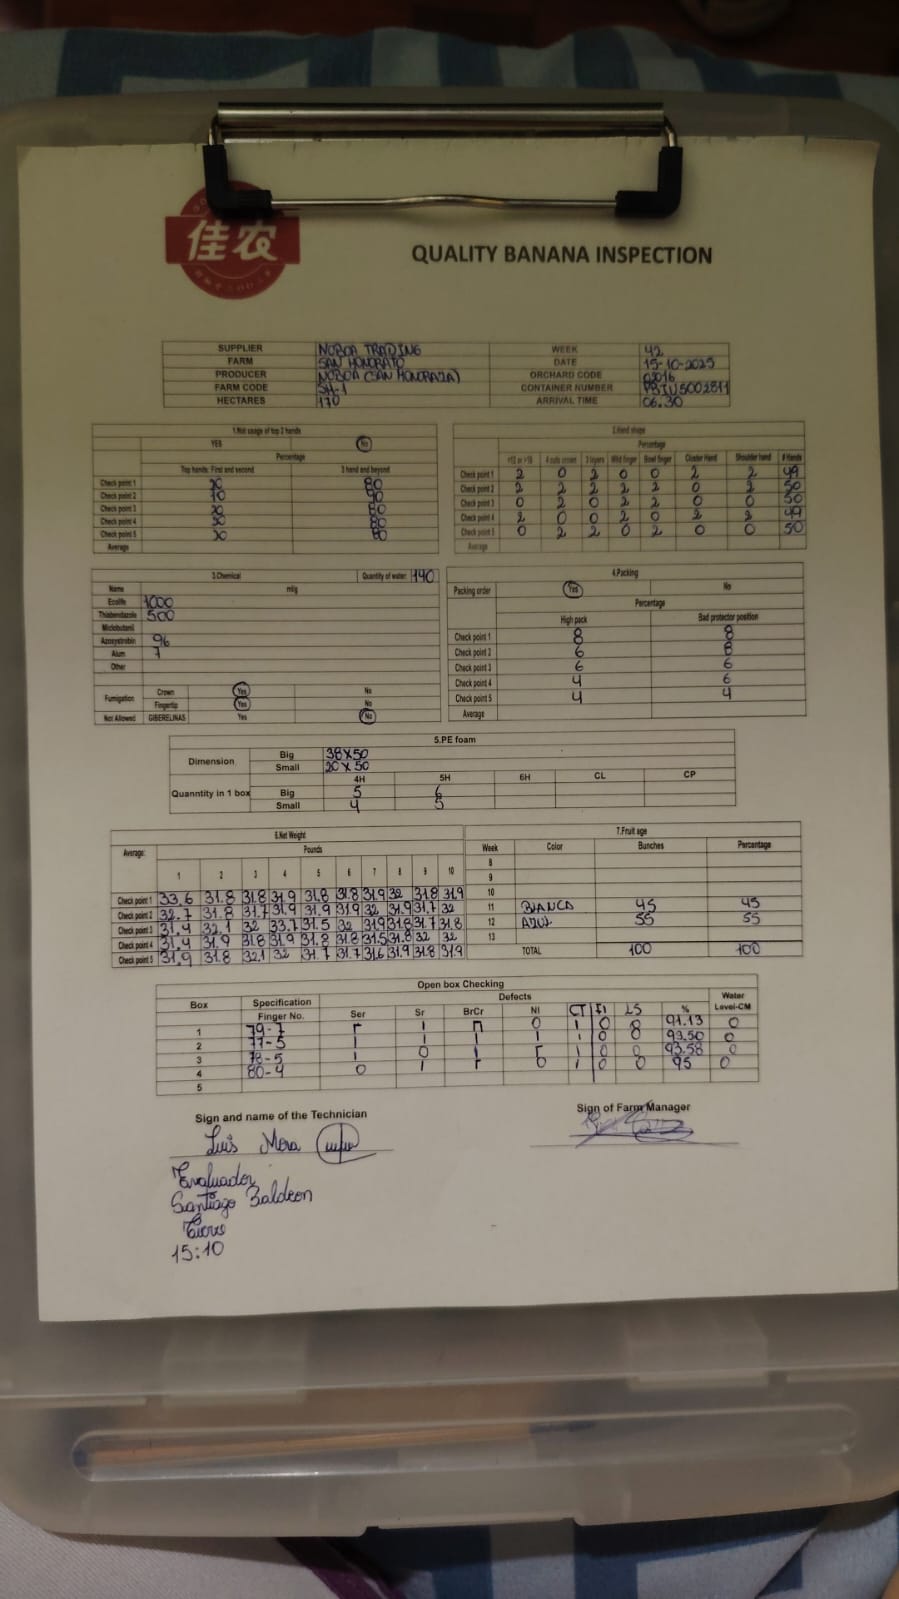 佳农
QUALITY BANANA INSPECTION
SUPPLIER NOBOA TRADING WEEK 42
FARM SAN HONORATO DATE 15-10-2025
PRODUCER NOBOA (SAN HONORAZA) ORCHARD CODE
FARM CODE SH-1 CONTAINER NUMBER
HECTARES 170 ARRIVAL TIME 06.30
1.Not usage of top 2 hands
YES No
Percentage
Top hands: First and second 3 hand and beyond
Check point 1 20 80
Check point 2 10 90
Check point 3 20 80
Check point 4 80
Check point 5 80
Average
2.Hand shape
Percentage
4 cuts crown 3 layers Wild finger Bowl finger Cluster Hand Shoulder hand # Hands
Check point 1 2 0 2 0 0 2 2 49
Check point 2 2 2 2 2 2 0 2 50
Check point 3 0 2 0 2 2 0 0 50
Check point 4 2 0 0 2 0 2 2 49
Check point 5 0 2 2 0 2 0 0 50
Average
3.Chemical Quantity of water: 140
Name ml/g
Ecolife 1000
Thiabendazole 500
Miclobutanil
Azoxystrobin 96
Alum 7
Other
Fumigation Crown Yes No
Fingertip Yes No
Not Allowed GIBERELINAS Yes No
4.Packing
Packing order Yes No
Percentage
High pack Bad protector position
Check point 1 8 8
Check point 2 6 8
Check point 3 6 6
Check point 4 4 6
Check point 5 4 4
Average
5.PE foam
Dimension Big 38x50
Small 20x50
4H 5H 6H CL CP
Quanntity in 1 box Big 5 6
Small 4 5
6.Net Weight
Average: Pounds
1 2 3 4 5 6 7 8 9 10
Check point 1 33.6 31.8 31.8 31.9 31.8 31.8 31.9 32 31.8 31.9
Check point 2 32.7 31.8 31.7 31.9 31.9 31.9 32 31.9 31.7 32
Check point 3 31.4 32.1 32 33.7 31.5 32 31.9 31.8 31.7 31.8
Check point 4 31.4 31.9 31.8 31.9 31.8 31.8 31.5 31.8 32 32
Check point 5 31.9 31.8 32.1 32 31.7 31.7 31.6 31.9 31.8 31.9
7.Fruit age
Week Color Bunches Percentage
8
9
10
11 BLANCO 45 45
12 AZUL 55 55
13
TOTAL 100 100
Open box Checking
Box Specification Defects Water
Finger No. Ser Sr BrCr NI CT LS % Level-CM
1 79-7 1 0 1 0 8 91.13 0
2 77-5 1 1 1 1 1 0 8 93.50 0
3 78-5 1 0 1 1 0 0 93.58 0
4 80-4 0 1 1 0 0 95 0
5
Sign and name of the Technician
Luis Mora
Sign of Farm Manager
Evaluador
Santiago Baldeon
15:10